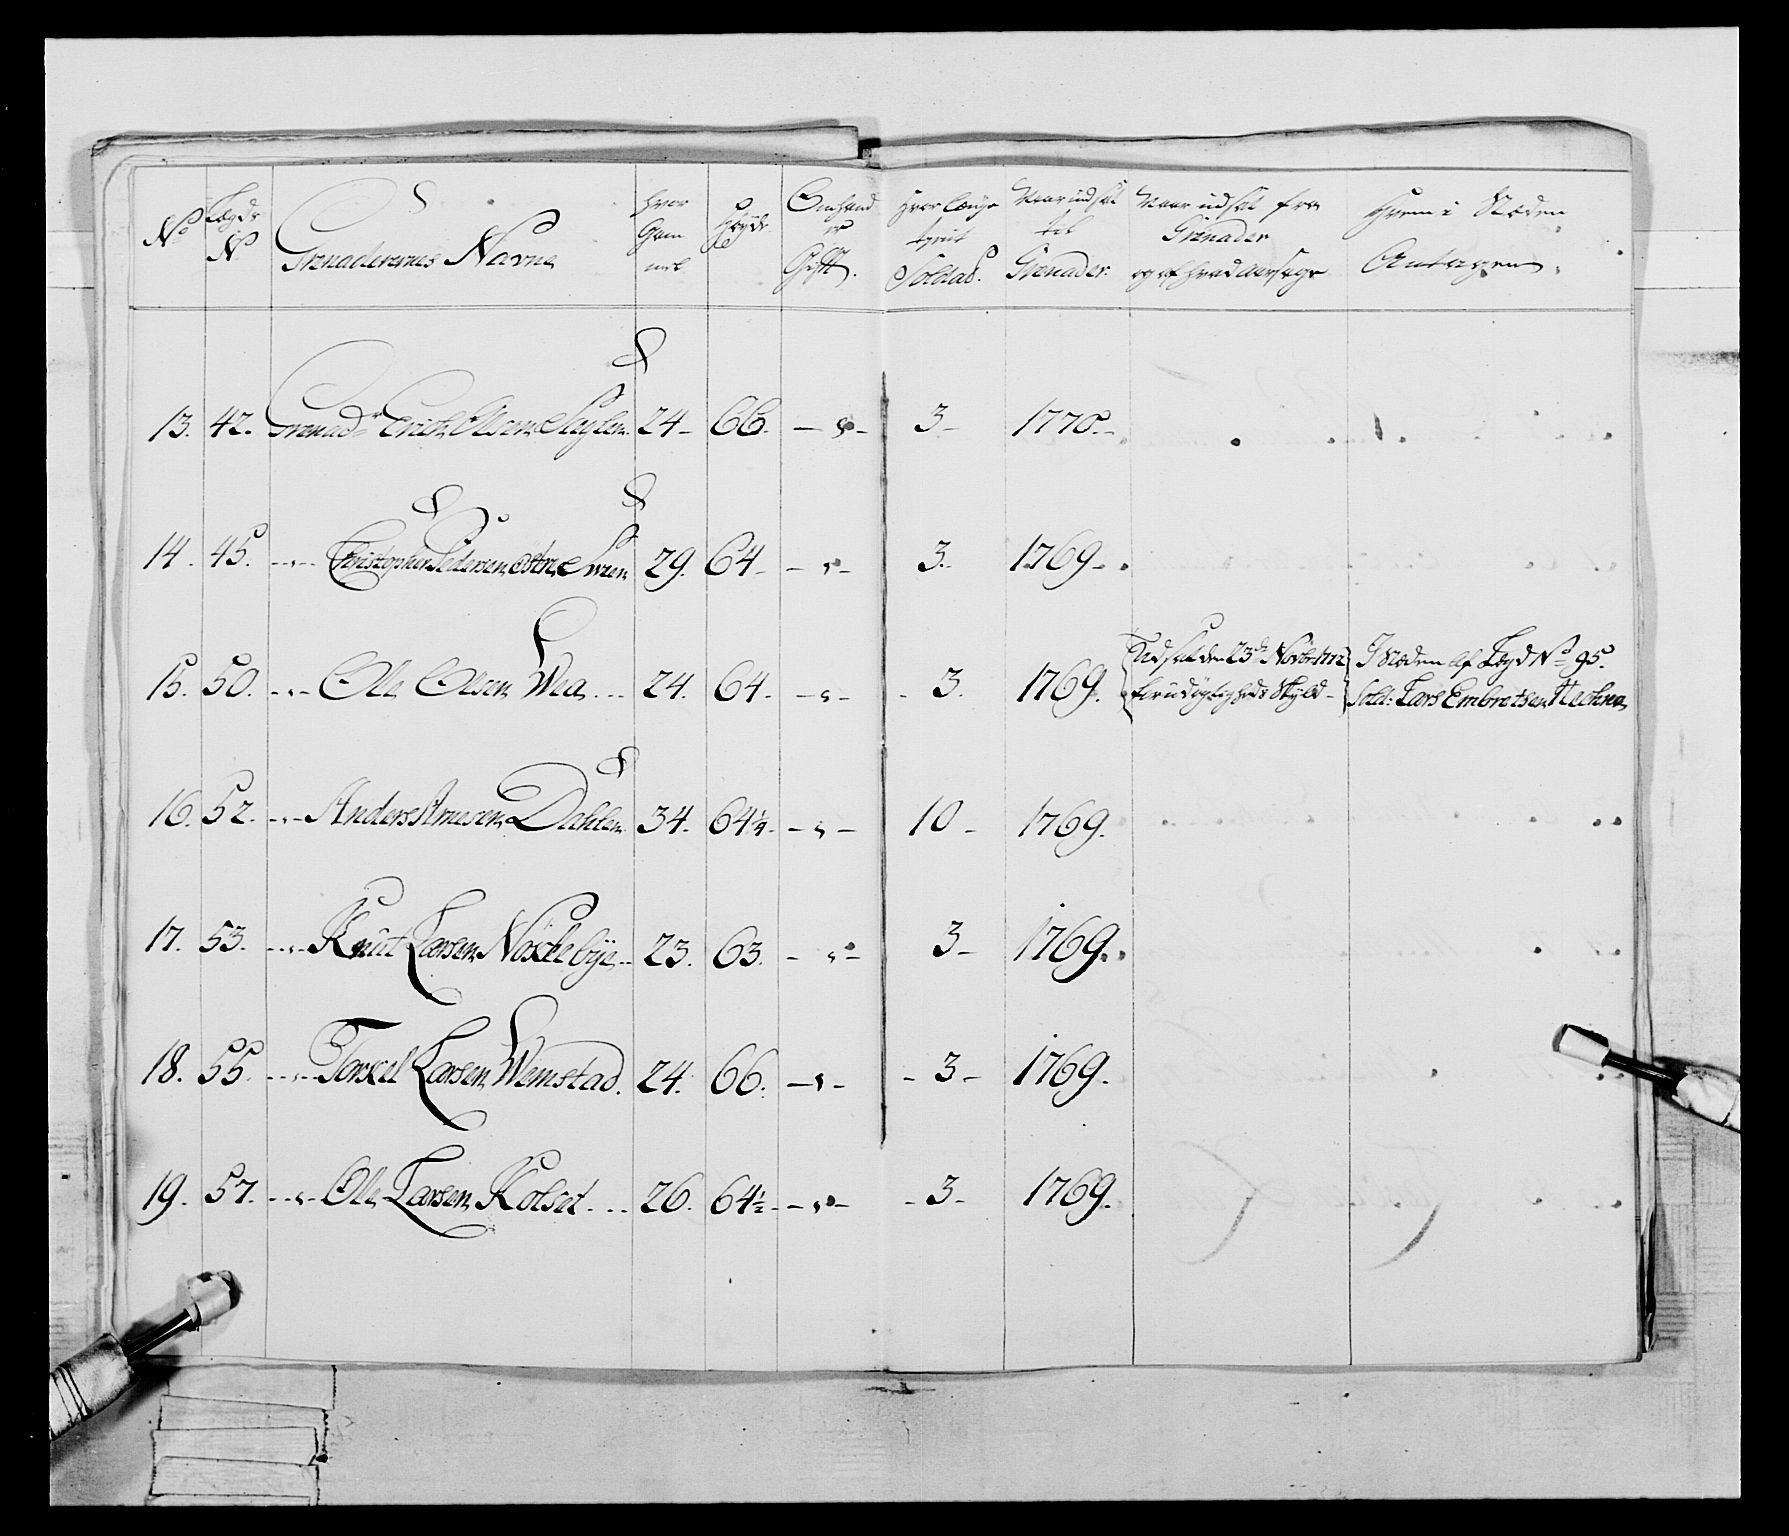 No
Lægds
No
Grenaderernes Navne
Hvor
Gam
mel
Høyde
Om hand
er
Gift.
Hvor længe
tient
Soldat.
Naar udsat
til
Grenader.
Naar udsat fra
Grenader
og af hvad aarsage
Hvem i Stæden
Antagen.
13. 42. Grenadr Erich Olsen 24 - 66. - " - 3 - 1770. -
14. 45. - " - Christopher Pedersen Østre 29. 64 - - " - 3. 1769 -
15. 50. - " - Ole Olsen Wea 24. 64. - " - - 3. 1769.
Udsat den 23de Novbr 1772
for udygtigheds Skyld -
I Stæden af Lægd No 95.
Sold: Lars Embretsen
16. 52. - " - Anders Arnesen Dahlen 34. 64¼. - " - 10 - 1769.
17. 53. - " - Knut Larsen Noskebÿe 23. 63. - " - 3 - 1769.
18. 55. - " - Torkel Larsen Wemstad. 24. 66. - " - - 3 - 1769.
19. 57. - " - Ole Larsen Kolset 26. 64½ - " - - 3 - 1769.